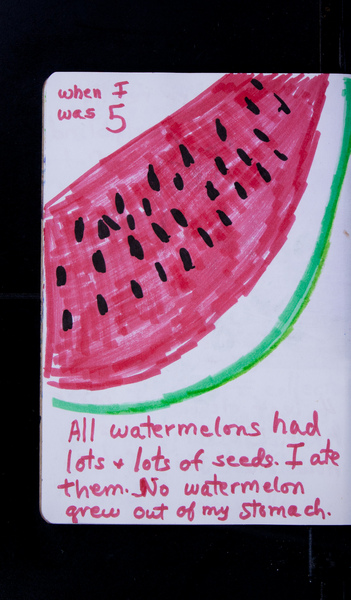 when I
was 5
All watermelons had
lots + lots of seeds. I ate
them. No watermelon
grew out of my stomach.